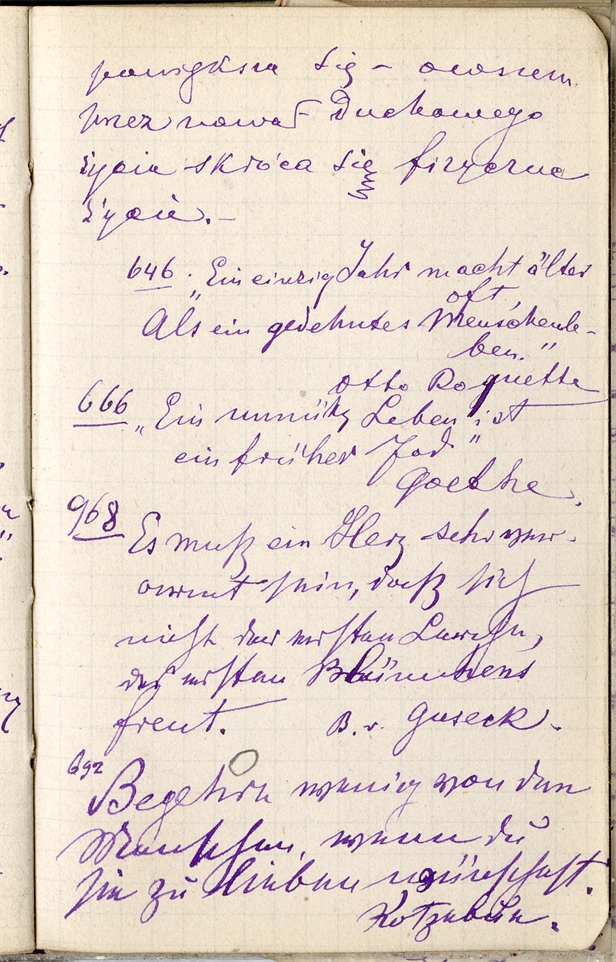 powiększa się – owszem
przez nawał Duchowego
życia skróca się fizyczne
życie. –
646. „Ein einzig Jahr macht älter
oft,
Als ein gedehntes Menschenle-
ben.“
Otto Roquette
666 „Ein unnütz Leben ist
ein früher Tod“
Goethe.
968 Es muß ein Herz sehr ver-
armt sein, daß sich
nicht der ersten Lerche,
des ersten Blümchens
freut. B. v. Guseck.
692 Begehre wenig von den
Menschen, wenn du
sie zu lieben wünschest.
Kotzebue.